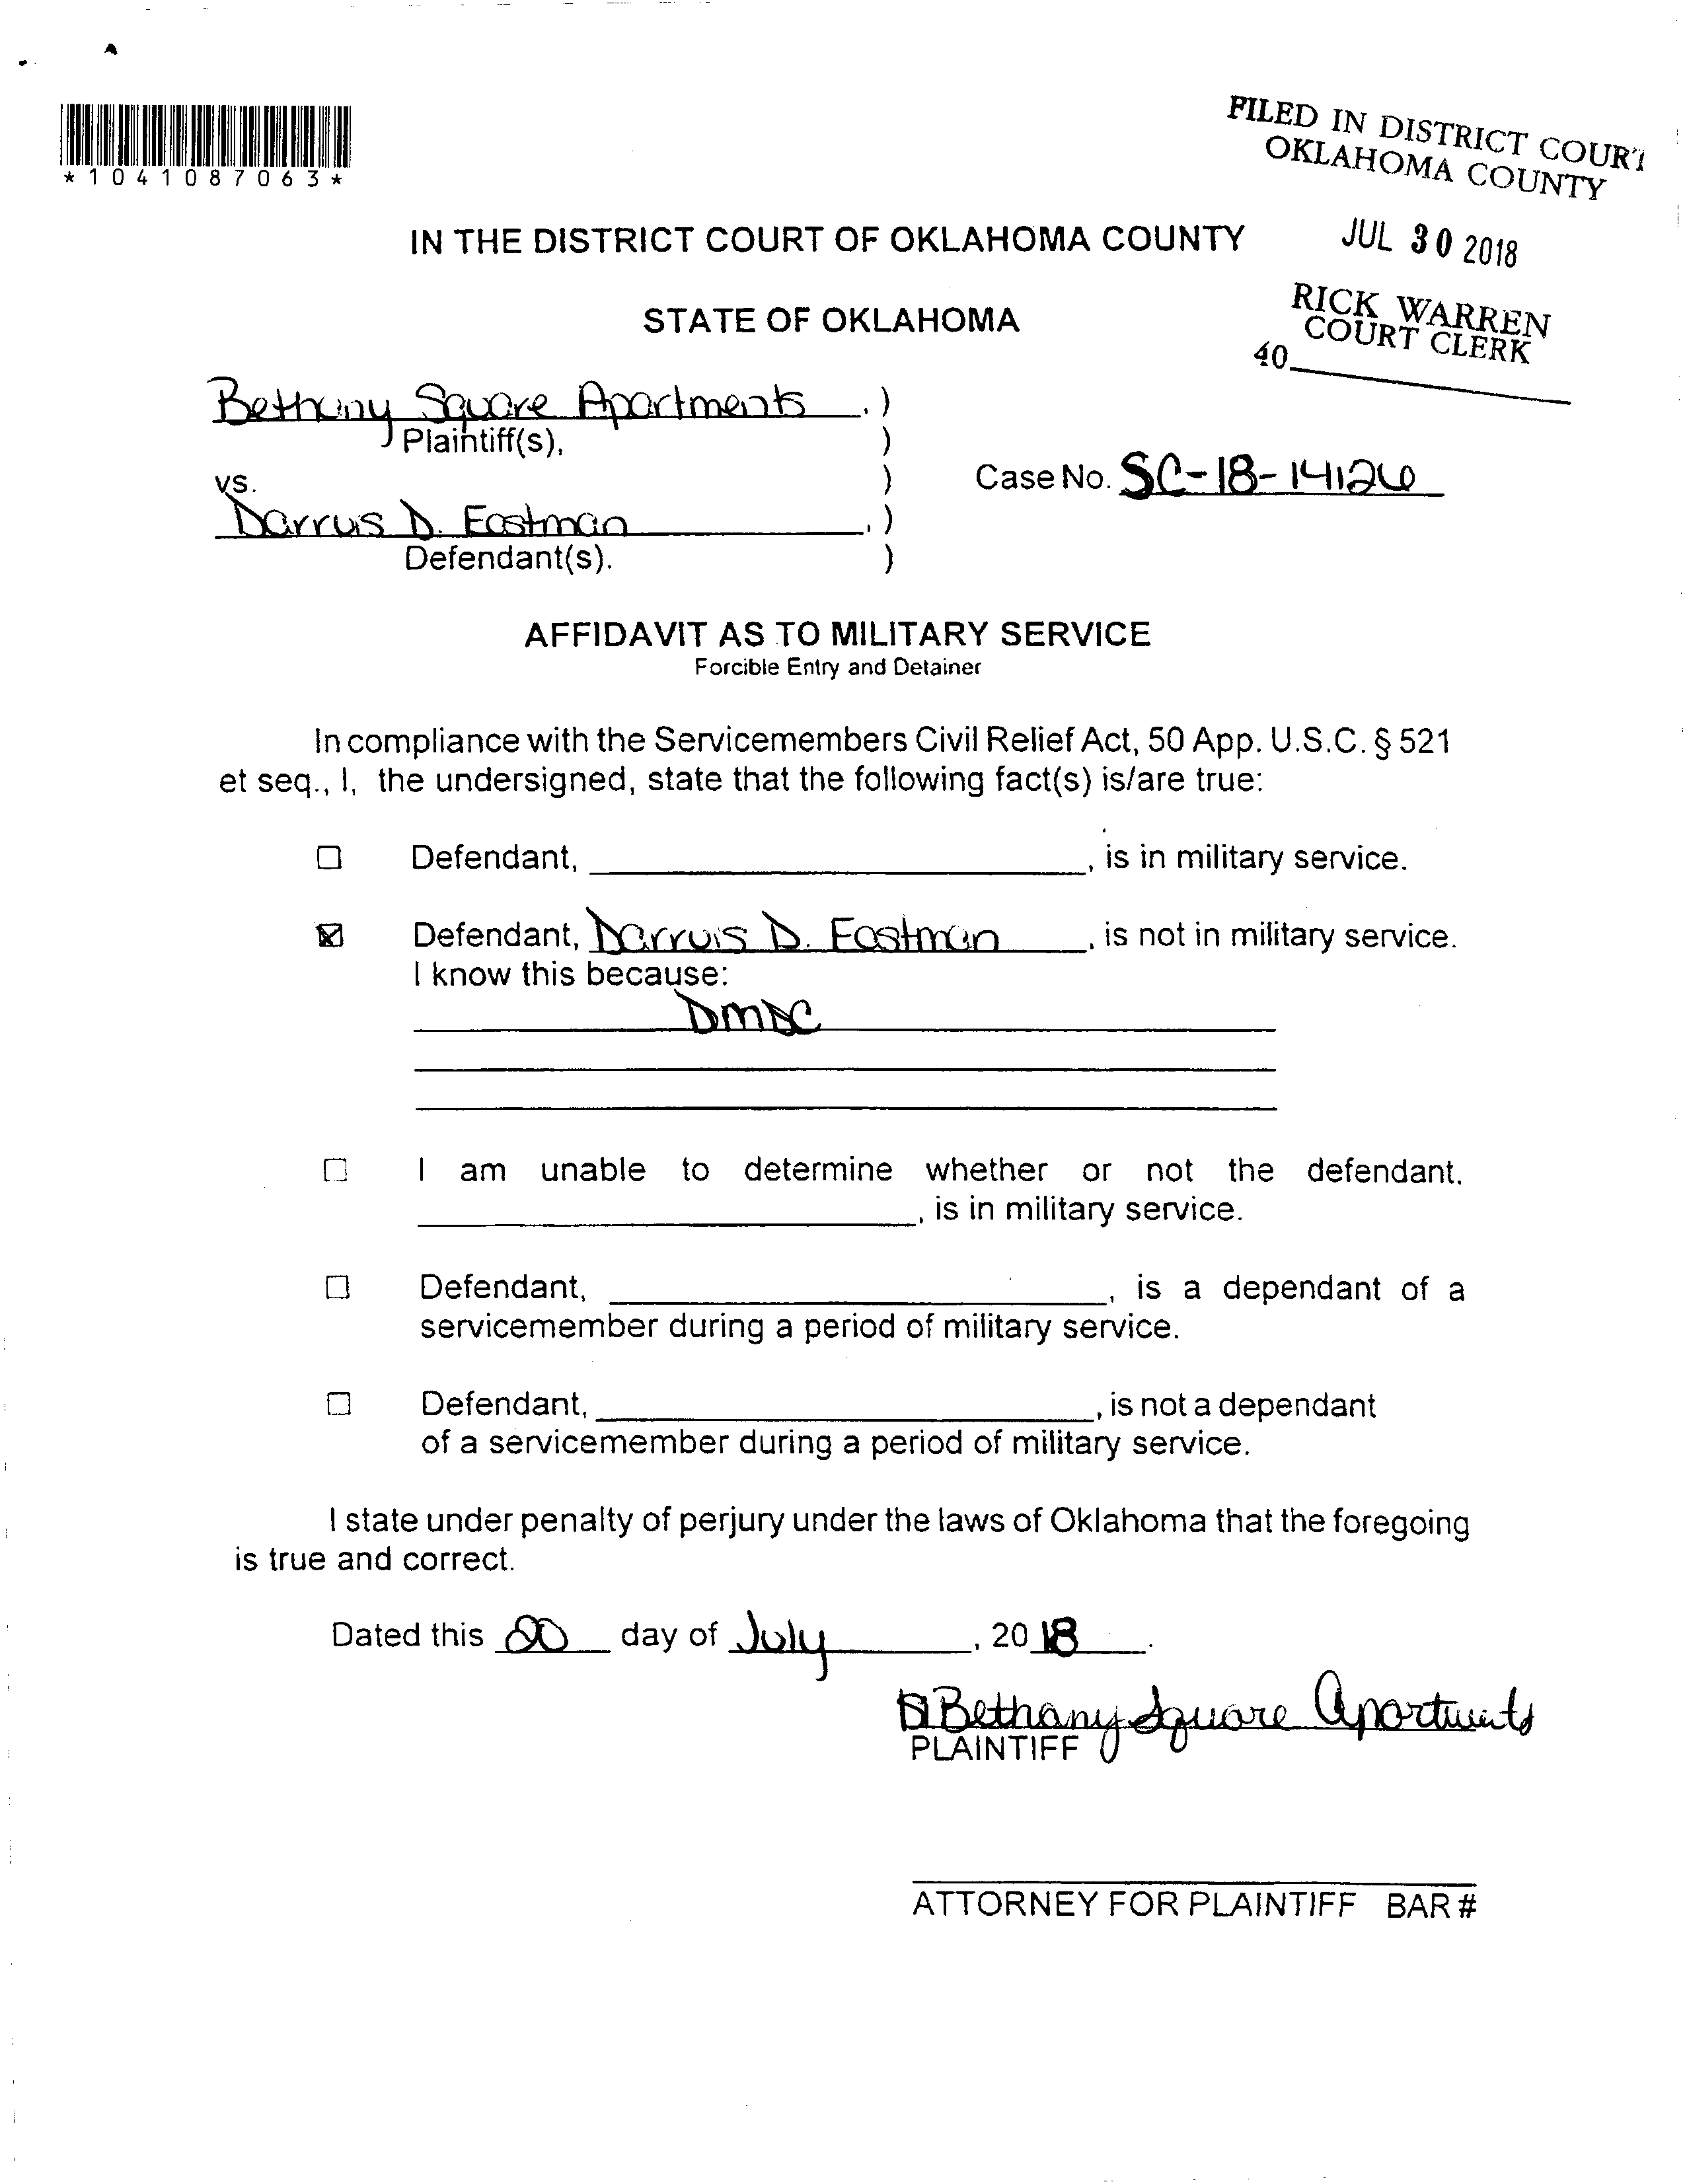 *104108 7063*
FILED IN DISTRICT COURT
OKLAHOMA COUNTY
JUL 30 2018
RICK WARREN
COURT CLERK
40
IN THE DISTRICT COURT OF OKLAHOMA COUNTY
STATE OF OKLAHOMA
Bethany Square Apartments, )
Plaintiff(s), )
vs. )
Case No. SC-18-14126
Darrus D. Eastman, )
Defendant(s). )
AFFIDAVIT AS TO MILITARY SERVICE
Forcible Entry and Detainer
In compliance with the Servicemembers Civil Relief Act, 50 App. U.S.C. § 521
et seq., I, the undersigned, state that the following fact(s) is/are true:
☐ Defendant, , is in military service.
☒ Defendant, Darruis D. Eastman, is not in military service.
I know this because:
DMDC
☐ I am unable to determine whether or not the defendant.
, is in military service.
☐ Defendant, , is a dependant of a
servicemember during a period of military service.
☐ Defendant, , is not a dependant
of a servicemember during a period of military service.
I state under penalty of perjury under the laws of Oklahoma that the foregoing
is true and correct.
Dated this 20 day of July, 2018.
Bethany Square Apartments
PLAINTIFF
ATTORNEY FOR PLAINTIFF BAR #